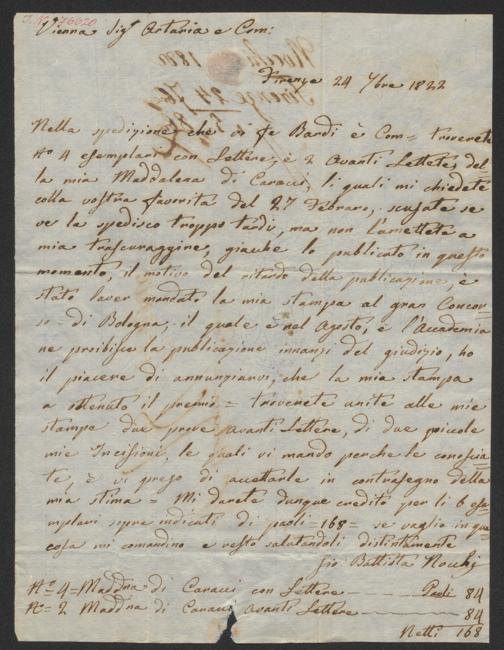 I.N. 76620
Vienna Sigr Artaria e Com:
Firenze 24 7bre 1822
Nella spedizione che vi fe Bardi è Com= troverete
No 4 esemplari con Lettere, è 2 avanti Lettere, del
la mia Maddalena di Caracci, li quali mi chiedete
colla vostra favorita del 27 Febraro, scusate se
ve la spedisco troppo tardi, ma non l'ametteta a
mia trascuraggine, giache lo publicato in questo
momento, il motivo del ritardo della publicazione, è
stato laver mandato la mia stampa al gran Concor
so = di Bologna, il quale è nel Agosto, è l'Accademia
ne proibisce la publicazione innanzi del giudizio, ho
il piacere di annunziarvi, che la mia stampa
a ottenuto il premio = troverete unite alle mie
stampe due prove avanti Lettere, di due piccole
mie Incisione, le quali vi mando perche le conoscia
te, è vi prego di accettarle in contrasegno della
mia stima = Mi darete dunque credito per li 6 ese
mplari sopra indicati di paoli =168= se vaglio in qua
cosa mi comandino e resto salutandoli distintamente
Gio: Battista Nocchi
No= 4= Maddna di Caracci con Lettere — Paoli 84
No= 2 Maddna di Caracci avanti Lettere — 84
Netti 168